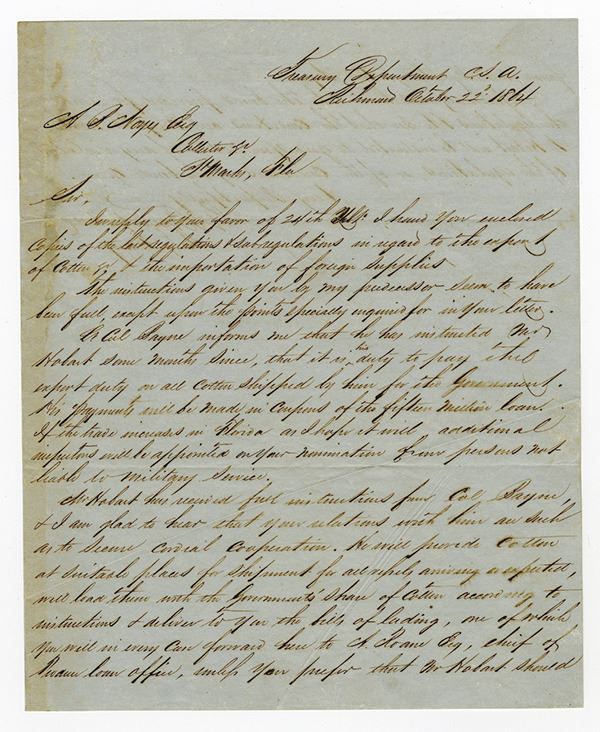 Treasury Department C.S.A.
Richmond October 22d 1864
A. B. Noyes Esq
Collector &c.
St Marks, Fla
Sir,
In reply to your favor of 24th Ulto I hand you enclosed
Copies of the last regulations & subregulations in regard to the export
of Cotton &c & the importation of foreign supplies
The instructions given you by my predecessor seem to have
been full, except upon the points specially enquired for in your letter.
Lt Col Payne informs me that he has instructed Mr
Hobart some months since, that it is his duty to pay the
export duty on all Cotton shipped by him for the Government.
His payments will be made in coupons of the fifteen million loan.
If the trade increases in Florida as I hope it will additional
inspectors will be appointed on your nomination from persons not
liable to military service.
Mr Hobart has received full instructions from Col. Payne,
& I am glad to hear that your relations with him are such
as to secure cordial cooperation. He will provide Cotton
at suitable places for shipment for all vessels arriving or expected,
will load them with the Governments share of Cotton according to
instructions & deliver to you the bills of lading, one of which
you will in every case forward here to Esq, chief of
loan office, unless you prefer that Mr Hobart should